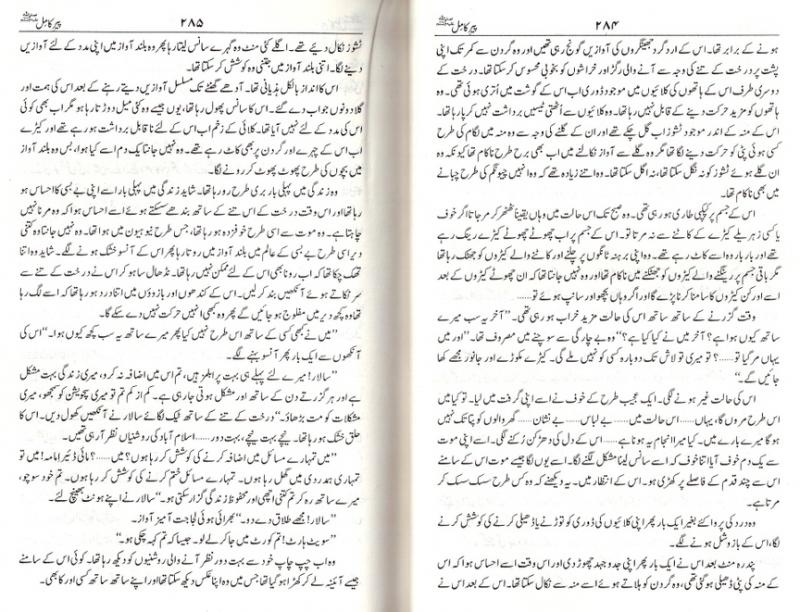 ۲۸۴ پیرِ کامل ﷺ
ہونے کے برابر تھا۔ اس کے ارد گرد جھینگروں کی آوازیں گونج رہی تھیں اور وہ گردن سے کمر تک اپنی
پشت پر درخت کے تنے کی وجہ سے آنے والی رگڑ اور خراشوں کو بخوبی محسوس کر سکتا تھا۔ درخت کے
دوسری طرف اس کے ہاتھوں کی کلائیوں میں موجود ڈوری اب اس کے گوشت میں اُتری ہوئی تھی۔ وہ
ہاتھوں کو مزید حرکت دینے کے قابل نہیں رہا تھا۔ وہ کلائیوں سے اٹھتی ٹیسیں برداشت نہیں کر پا رہا تھا۔
اس کے منہ کے اندر موجود ٹشوز اب گل چکے تھے اور ان کے گلنے کی وجہ سے وہ منہ میں لگام کی طرح
کسی ہوئی پٹی کو حرکت دینے لگا تھا مگر وہ گلے سے آواز نکالنے میں اب بھی بری طرح ناکام تھا کیونکہ وہ
ان گلے ہوئے ٹشوز کو نہ نگل سکتا تھا، نہ اگل سکتا تھا۔ وہ اتنے زیادہ تھے کہ وہ انہیں چیونگم کی طرح چبانے
میں بھی ناکام تھا۔
اس کے جسم پر کپکپی طاری ہو رہی تھی۔ وہ صبح تک اس حالت میں وہاں یقیناً ٹھٹھر کر مر جاتا اگر خوف
یا کسی زہریلے کیڑے کے کاٹنے سے نہ مرتا تو۔ اس کے جسم پر اب چھوٹے چھوٹے کیڑے رینگ رہے
تھے اور بار بار وہ اسے کاٹ رہے تھے۔ وہ اپنی برہنہ ٹانگوں پر چلنے اور کاٹنے والے کیڑوں کو جھٹک رہا تھا
مگر باقی جسم پر رینگنے والے کیڑوں کو جھٹکنے میں ناکام تھا اور وہ نہیں جانتا تھا کہ ان چھوٹے کیڑوں کے بعد
اسے اور کن کیڑوں کا سامنا کرنا پڑے گا اور اگر وہاں بچھو اور سانپ ہوئے تو......
وقت گزرنے کے ساتھ ساتھ اس کی حالت مزید خراب ہو رہی تھی۔ "آخر یہ سب میرے
ساتھ کیوں ہوا ہے؟ آخر میں نے کیا کیا ہے؟" وہ بے چارگی سے سوچنے میں مصروف تھا۔ "اور میں
یہاں مر گیا تو...... تو میری تو لاش تک دوبارہ کسی کو نہیں ملے گی۔ کیڑے مکوڑے اور جانور مجھے کھا
جائیں گے۔"
اس کی حالت غیر ہونے لگی۔ ایک عجیب طرح کے خوف نے اسے اپنی گرفت میں لیا۔ تو کیا میں
اس طرح مروں گا، یہاں...... اس حالت میں...... بے لباس...... بے نشان...... گھر والوں کو پتا تک نہیں
ہو گا میرے بارے میں۔ کیا میرا انجام یہ ہونا ہے...... اس کے دل کی دھڑکن رکنے لگی۔ اسے اپنی موت
سے یک دم خوف آیا اتنا خوف کہ اسے سانس لینا مشکل لگنے لگا۔ اسے یوں لگا جیسے موت اس کے سامنے
اس سے چند قدم کے فاصلے پر کھڑی ہو۔ اس کے انتظار میں۔ یہ دیکھنے کہ وہ کس طرح سسک سسک کر
مرتا ہے۔
وہ درد کی پروا کئے بغیر ایک بار پھر اپنی کلائیوں کی ڈوری کو توڑنے یا ڈھیلی کرنے کی کوشش کرنے
لگا، اس کے بازو شل ہونے لگے۔
پندرہ منٹ بعد اس نے ایک بار پھر اپنی جدوجہد چھوڑ دی اور اس وقت اسے احساس ہوا کہ اس
کے منہ کی پٹی ڈھیلی ہو گئی تھی، وہ گردن کو ہلاتے ہوئے اسے منہ سے نکال سکتا تھا۔ اس کے بعد اس نے
پیرِ کامل ﷺ ۲۸۵
ٹشوز نکال دیے تھے۔ اگلے کئی منٹ وہ گہرے سانس لیتا رہا پھر وہ بلند آواز میں اپنی مدد کے لئے آوازیں
دینے لگا۔ اتنی بلند آواز میں جتنی وہ کوشش کر سکتا تھا۔
اس کا انداز بالکل ہذیانی تھا۔ آدھے گھنٹے تک مسلسل آوازیں دیتے رہنے کے بعد اس کی ہمت اور
گلا دونوں جواب دے گئے۔ اس کا سانس پھول رہا تھا، یوں جیسے وہ کئی میل دوڑتا رہا ہو مگر اب بھی کوئی
اس کی مدد کے لئے نہیں آیا تھا۔ کلائی کے زخم اب اس کے لئے ناقابل برداشت ہو رہے تھے اور کیڑے
اب اس کے چہرے اور گردن پر بھی کاٹ رہے تھے۔ وہ نہیں جانتا یک دم اسے کیا ہوا، بس وہ بلند آواز
میں بچوں کی طرح پھوٹ پھوٹ کر رونے لگا۔
وہ زندگی میں پہلی بار بری طرح رو رہا تھا۔ شاید زندگی میں پہلی بار اسے اپنی بے بسی کا احساس ہو
رہا تھا اور اس وقت درخت کے اس تنے کے ساتھ بندھے سسکتے ہوئے اسے احساس ہوا کہ وہ مرنا نہیں
چاہتا ہے۔ وہ موت سے اسی طرح خوفزدہ ہو رہا تھا، جس طرح نیو ہیون میں ہوا تھا۔ وہ نہیں جانتا وہ کتنی
دیر اسی طرح بے بسی کے عالم میں بلند آواز میں روتا رہا پھر اس کے آنسو خشک ہونے لگے۔ شاید وہ اتنا
تھک چکا تھا کہ اب رونا بھی اس کے لئے ممکن نہیں رہا تھا۔ نڈھال سا ہو کر اس نے درخت کے تنے سے
سر ٹکاتے ہوئے آنکھیں بند کر لیں۔ اس کے کندھوں اور بازوؤں میں اتنا درد ہو رہا تھا کہ اسے لگ رہا
تھا وہ کچھ دیر میں مفلوج ہو جائیں گے پھر وہ کبھی انہیں حرکت نہیں دے سکے گا۔
"میں نے کبھی کسی کے ساتھ اس طرح نہیں کیا پھر میرے ساتھ یہ سب کچھ کیوں ہوا۔" اس کی
آنکھوں سے ایک بار پھر آنسو بہنے لگے۔
"سالار! میرے لئے پہلے ہی بہت پرابلمز ہیں، تم اس میں اضافہ نہ کرو، میری زندگی بہت مشکل
ہے اور ہر گزرتے دن کے ساتھ اور مشکل ہوتی جا رہی ہے۔ کم از کم تم تو میری سچویشن کو سمجھو، میری
مشکلات کو مت بڑھاؤ۔" درخت کے تنے کے ساتھ ٹیک لگائے سالار نے آنکھیں کھول دیں۔ اس کا
حلق خشک ہو رہا تھا۔ نیچے بہت نیچے، بہت دور...... اسلام آباد کی روشنیاں نظر آ رہی تھیں۔
"میں تمہارے مسائل میں اضافہ کرنے کی کوشش کر رہا ہوں؟ میں......؟ مائی ڈئیر امامہ! میں تو
تمہاری ہمدردی میں گھل رہا ہوں۔ تمہارے مسائل ختم کرنے کی کوشش کر رہا ہوں۔ تم خود سوچو،
میرے ساتھ رہ کر تم کتنی اچھی اور محفوظ زندگی گزار سکتی ہو۔" سالار نے اپنے ہونٹ بھینچ لئے۔
"سالار! مجھے طلاق دے دو۔" بھرائی ہوئی لجاجت آمیز آواز۔
"سویٹ ہارٹ! تم کورٹ میں جا کر لے لو۔ جیسا کہ تم کہہ چکی ہو۔"
وہ اب چپ چاپ خود سے بہت دور نظر آنے والی روشنیوں کو دیکھ رہا تھا۔ کوئی اس کے سامنے
جیسے آئینہ لے کر کھڑا ہو گیا تھا جس میں وہ اپنا عکس دیکھ سکتا تھا اور اپنے ساتھ ساتھ کسی اور کا بھی۔